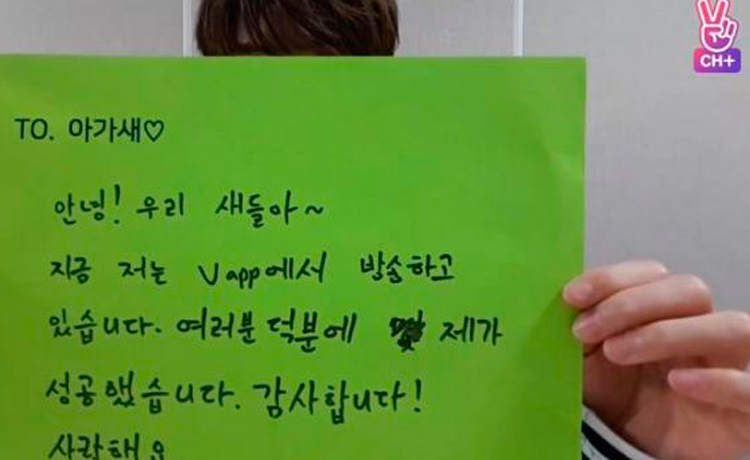 TO. 아가새♡
안녕! 우리 새들아~
지금 저는 Vapp에서 방송하고
있습니다. 여러분 덕분에 제가
성공했습니다. 감사합니다!
사랑해요
V
CH+